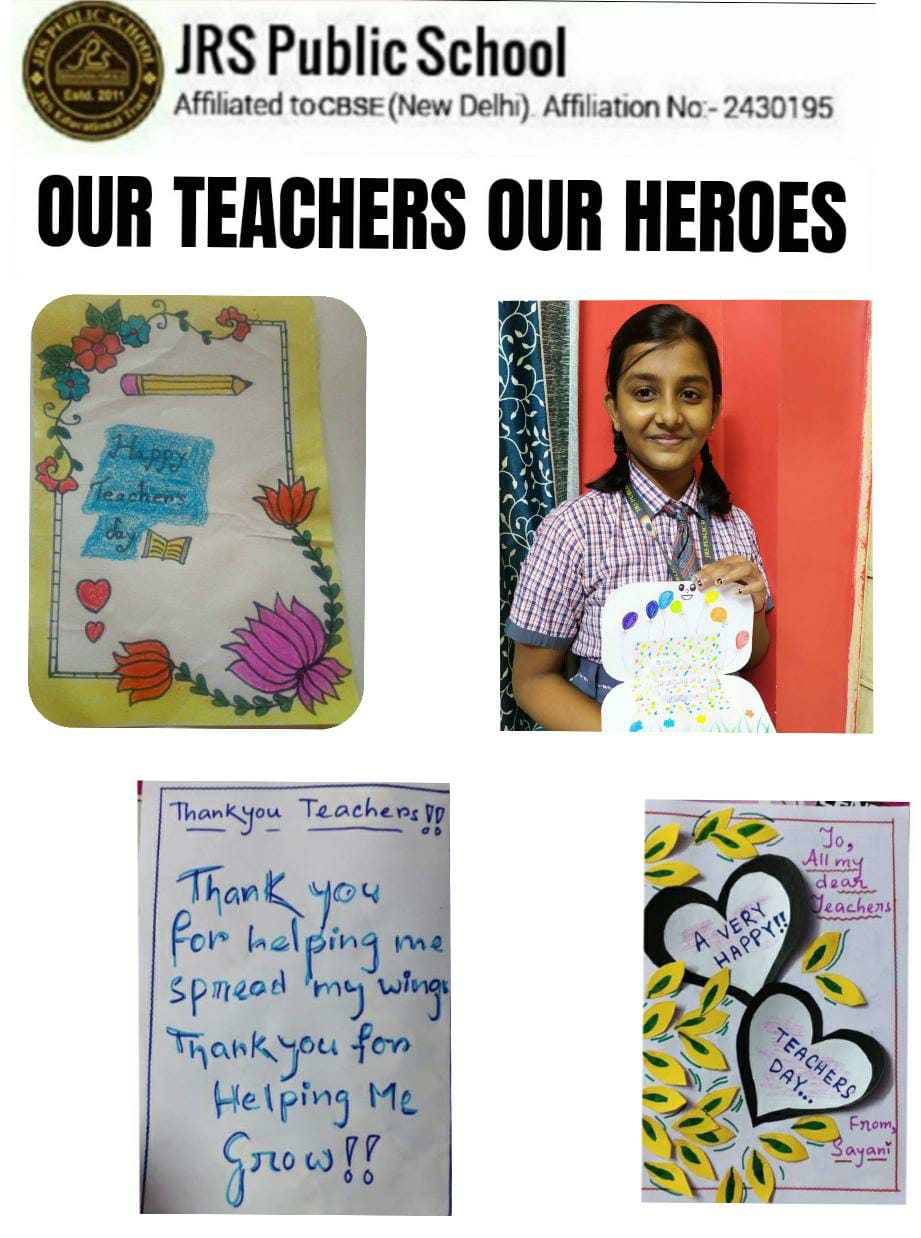 JRS PUBLIC SCHOOL
JRS
Estd. 2011
JRS Educational Trust
JRS Public School
Affiliated to CBSE (New Delhi). Affiliation No:- 2430195
OUR TEACHERS OUR HEROES
Happy
Teachers
day
JRS PUBLIC
JRS PUBLIC
Thankyou Teachers!!
Thank you
for helping me
spread my wings
Thankyou for
Helping Me
Grow!!
To,
All my
dear
Teachers
A VERY
HAPPY!!
TEACHERS
DAY...
From,
Sayani